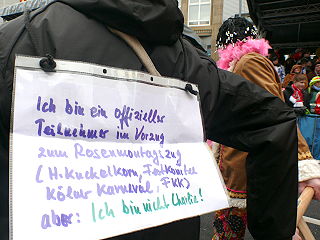 Ich bin ein offizieller
Teilnehmer im Vorzug
zum Rosenmontagszug
(H. Kuckelkorn, Festkomitee
Kölner Karneval, FKK)
aber: Ich bin nicht Charlie!